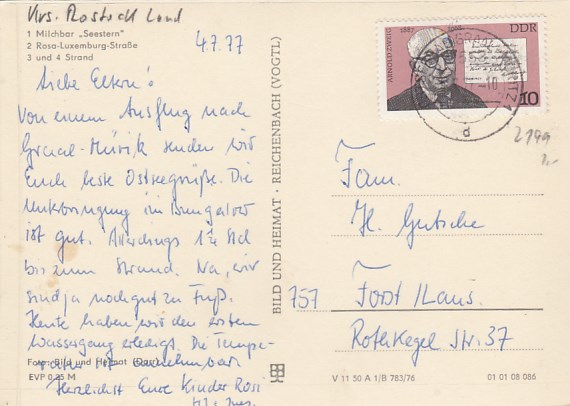 Krs. Rostock Land
1 Milchbar „Seestern"
2 Rosa-Luxemburg-Straße
3 und 4 Strand
4.7.77
Liebe Eltern!
Von einem Ausflug nach
Graal-Müritz senden wir
Euch beste Ostseegrüße. Die
Unterbringung im Bungalow
ist gut. Allerdings Std
bis zum Strand. Na, wir
sind ja noch gut zu Fuß.
Heute haben wir den ersten
Wassergang erledigt. Die Tempe-
ratur ist annehmbar
Foto: Bild und Heimat
EVP 0,25 M
Herzlichst Eure Kinder Rosi
BILD UND HEIMAT · REICHENBACH (VOGTL)
ARNOLD ZWEIG
1887
1968
DDR
10
d
2199
Fam.
H. Gutsche
757
Forst /Laus.
Rothkegel Str. 37
V 11 50 A 1/B 783/76
01 01 08 086